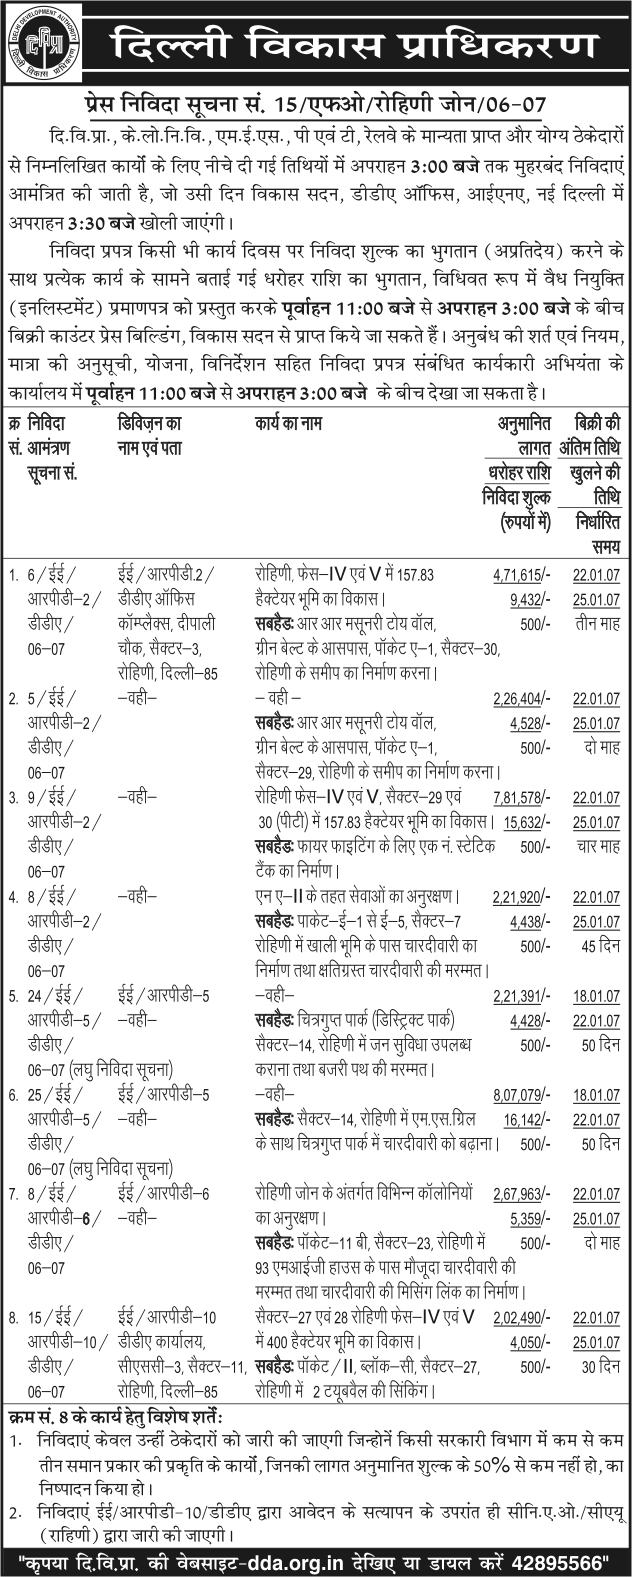 DELHI DEVELOPMENT AUTHORITY
दि वि प्रा
दिल्ली विकास प्राधिकरण
दिल्ली विकास प्राधिकरण
प्रेस निविदा सूचना सं. 15/एफओ/रोहिणी जोन/06-07
दि.वि.प्रा., के.लो.नि.वि., एम.ई.एस., पी एवं टी, रेलवे के मान्यता प्राप्त और योग्य ठेकेदारों
से निम्नलिखित कार्यों के लिए नीचे दी गई तिथियों में अपराहन 3:00 बजे तक मुहरबंद निविदाएं
आमंत्रित की जाती है, जो उसी दिन विकास सदन, डीडीए ऑफिस, आईएनए, नई दिल्ली में
अपराहन 3:30 बजे खोली जाएंगी।
निविदा प्रपत्र किसी भी कार्य दिवस पर निविदा शुल्क का भुगतान (अप्रतिदेय) करने के
साथ प्रत्येक कार्य के सामने बताई गई धरोहर राशि का भुगतान, विधिवत रूप में वैध नियुक्ति
(इनलिस्टमेंट) प्रमाणपत्र को प्रस्तुत करके पूर्वाहन 11:00 बजे से अपराहन 3:00 बजे के बीच
बिक्री काउंटर प्रेस बिल्डिंग, विकास सदन से प्राप्त किये जा सकते हैं। अनुबंध की शर्त एवं नियम,
मात्रा की अनुसूची, योजना, विनिर्देशन सहित निविदा प्रपत्र संबंधित कार्यकारी अभियंता के
कार्यालय में पूर्वाहन 11:00 बजे से अपराहन 3:00 बजे के बीच देखा जा सकता है।
क्र निविदा डिविज़न का कार्य का नाम अनुमानित बिक्री की
सं. आमंत्रण नाम एवं पता लागत अंतिम तिथि
सूचना सं. धरोहर राशि खुलने की
निविदा शुल्क तिथि
(रुपयों में) निर्धारित
समय
1. 6/ईई/ ईई/आरपीडी.2/ रोहिणी, फेस-IV एवं V में 157.83 4,71,615/- 22.01.07
आरपीडी-2/ डीडीए ऑफिस हैक्टेयर भूमि का विकास। 9,432/- 25.01.07
डीडीए/ कॉम्प्लैक्स, दीपाली सबहैडः आर आर मसूनरी टोय वॉल, 500/- तीन माह
06-07 चौक, सैक्टर-3, ग्रीन बेल्ट के आसपास, पॉकेट ए-1, सैक्टर-30,
रोहिणी, दिल्ली-85 रोहिणी के समीप का निर्माण करना।
2. 5/ईई/ -वही- - वही - 2,26,404/- 22.01.07
आरपीडी-2/ सबहैडः आर आर मसूनरी टोय वॉल, 4,528/- 25.01.07
डीडीए/ ग्रीन बेल्ट के आसपास, पॉकेट ए-1, 500/- दो माह
06-07 सैक्टर-29, रोहिणी के समीप का निर्माण करना।
3. 9/ईई/ -वही- रोहिणी फेस-IV एवं V, सैक्टर-29 एवं 7,81,578/- 22.01.07
आरपीडी-2/ 30 (पीटी) में 157.83 हैक्टेयर भूमि का विकास। 15,632/- 25.01.07
डीडीए/ सबहैडः फायर फाइटिंग के लिए एक नं. स्टेटिक 500/- चार माह
06-07 टैंक का निर्माण।
4. 8/ईई/ -वही- एन ए-II के तहत सेवाओं का अनुरक्षण। 2,21,920/- 22.01.07
आरपीडी-2/ सबहैडः पाकेट-ई-1 से ई-5, सैक्टर-7 4,438/- 25.01.07
डीडीए/ रोहिणी में खाली भूमि के पास चारदीवारी का 500/- 45 दिन
06-07 निर्माण तथा क्षतिग्रस्त चारदीवारी की मरम्मत।
5. 24/ईई/ ईई/आरपीडी-5 -वही- 2,21,391/- 18.01.07
आरपीडी-5/ -वही- सबहैडः चित्रगुप्त पार्क (डिस्ट्रिक्ट पार्क) 4,428/- 22.01.07
डीडीए/ सैक्टर-14, रोहिणी में जन सुविधा उपलब्ध 500/- 50 दिन
06-07 (लघु निविदा सूचना) कराना तथा बजरी पथ की मरम्मत।
6. 25/ईई/ ईई/आरपीडी-5 -वही- 8,07,079/- 18.01.07
आरपीडी-5/ -वही- सबहैडः सैक्टर-14, रोहिणी में एम.एस.ग्रिल 16,142/- 22.01.07
डीडीए/ के साथ चित्रगुप्त पार्क में चारदीवारी को बढ़ाना। 500/- 50 दिन
06-07 (लघु निविदा सूचना)
7. 8/ईई/ ईई/आरपीडी-6 रोहिणी जोन के अंतर्गत विभिन्न कॉलोनियों 2,67,963/- 22.01.07
आरपीडी-6/ -वही- का अनुरक्षण। 5,359/- 25.01.07
डीडीए/ सबहैडः पॉकेट-11 बी, सैक्टर-23, रोहिणी में 500/- दो माह
06-07 93 एमआईजी हाउस के पास मौजूदा चारदीवारी की
मरम्मत तथा चारदीवारी की मिसिंग लिंक का निर्माण।
8. 15/ईई/ ईई/आरपीडी-10 सैक्टर-27 एवं 28 रोहिणी फेस-IV एवं V 2,02,490/- 22.01.07
आरपीडी-10/ डीडीए कार्यालय, में 400 हैक्टेयर भूमि का विकास। 4,050/- 25.01.07
डीडीए/ सीएससी-3, सैक्टर-11, सबहैडः पॉकेट/II, ब्लॉक-सी, सैक्टर-27, 500/- 30 दिन
06-07 रोहिणी, दिल्ली-85 रोहिणी में 2 टयूबवैल की सिंकिंग।
क्रम सं. 8 के कार्य हेतु विशेष शर्तेंः
1. निविदाएं केवल उन्हीं ठेकेदारों को जारी की जाएगी जिन्होनें किसी सरकारी विभाग में कम से कम
तीन समान प्रकार की प्रकृति के कार्यों, जिनकी लागत अनुमानित शुल्क के 50% से कम नहीं हो, का
निष्पादन किया हो।
2. निविदाएं ईई/आरपीडी-10/डीडीए द्वारा आवेदन के सत्यापन के उपरांत ही सीनि.ए.ओ./सीएयू
(राहिणी) द्वारा जारी की जाएगी।
"कृपया दि.वि.प्रा. की वेबसाइट-dda.org.in देखिए या डायल करें 42895566"